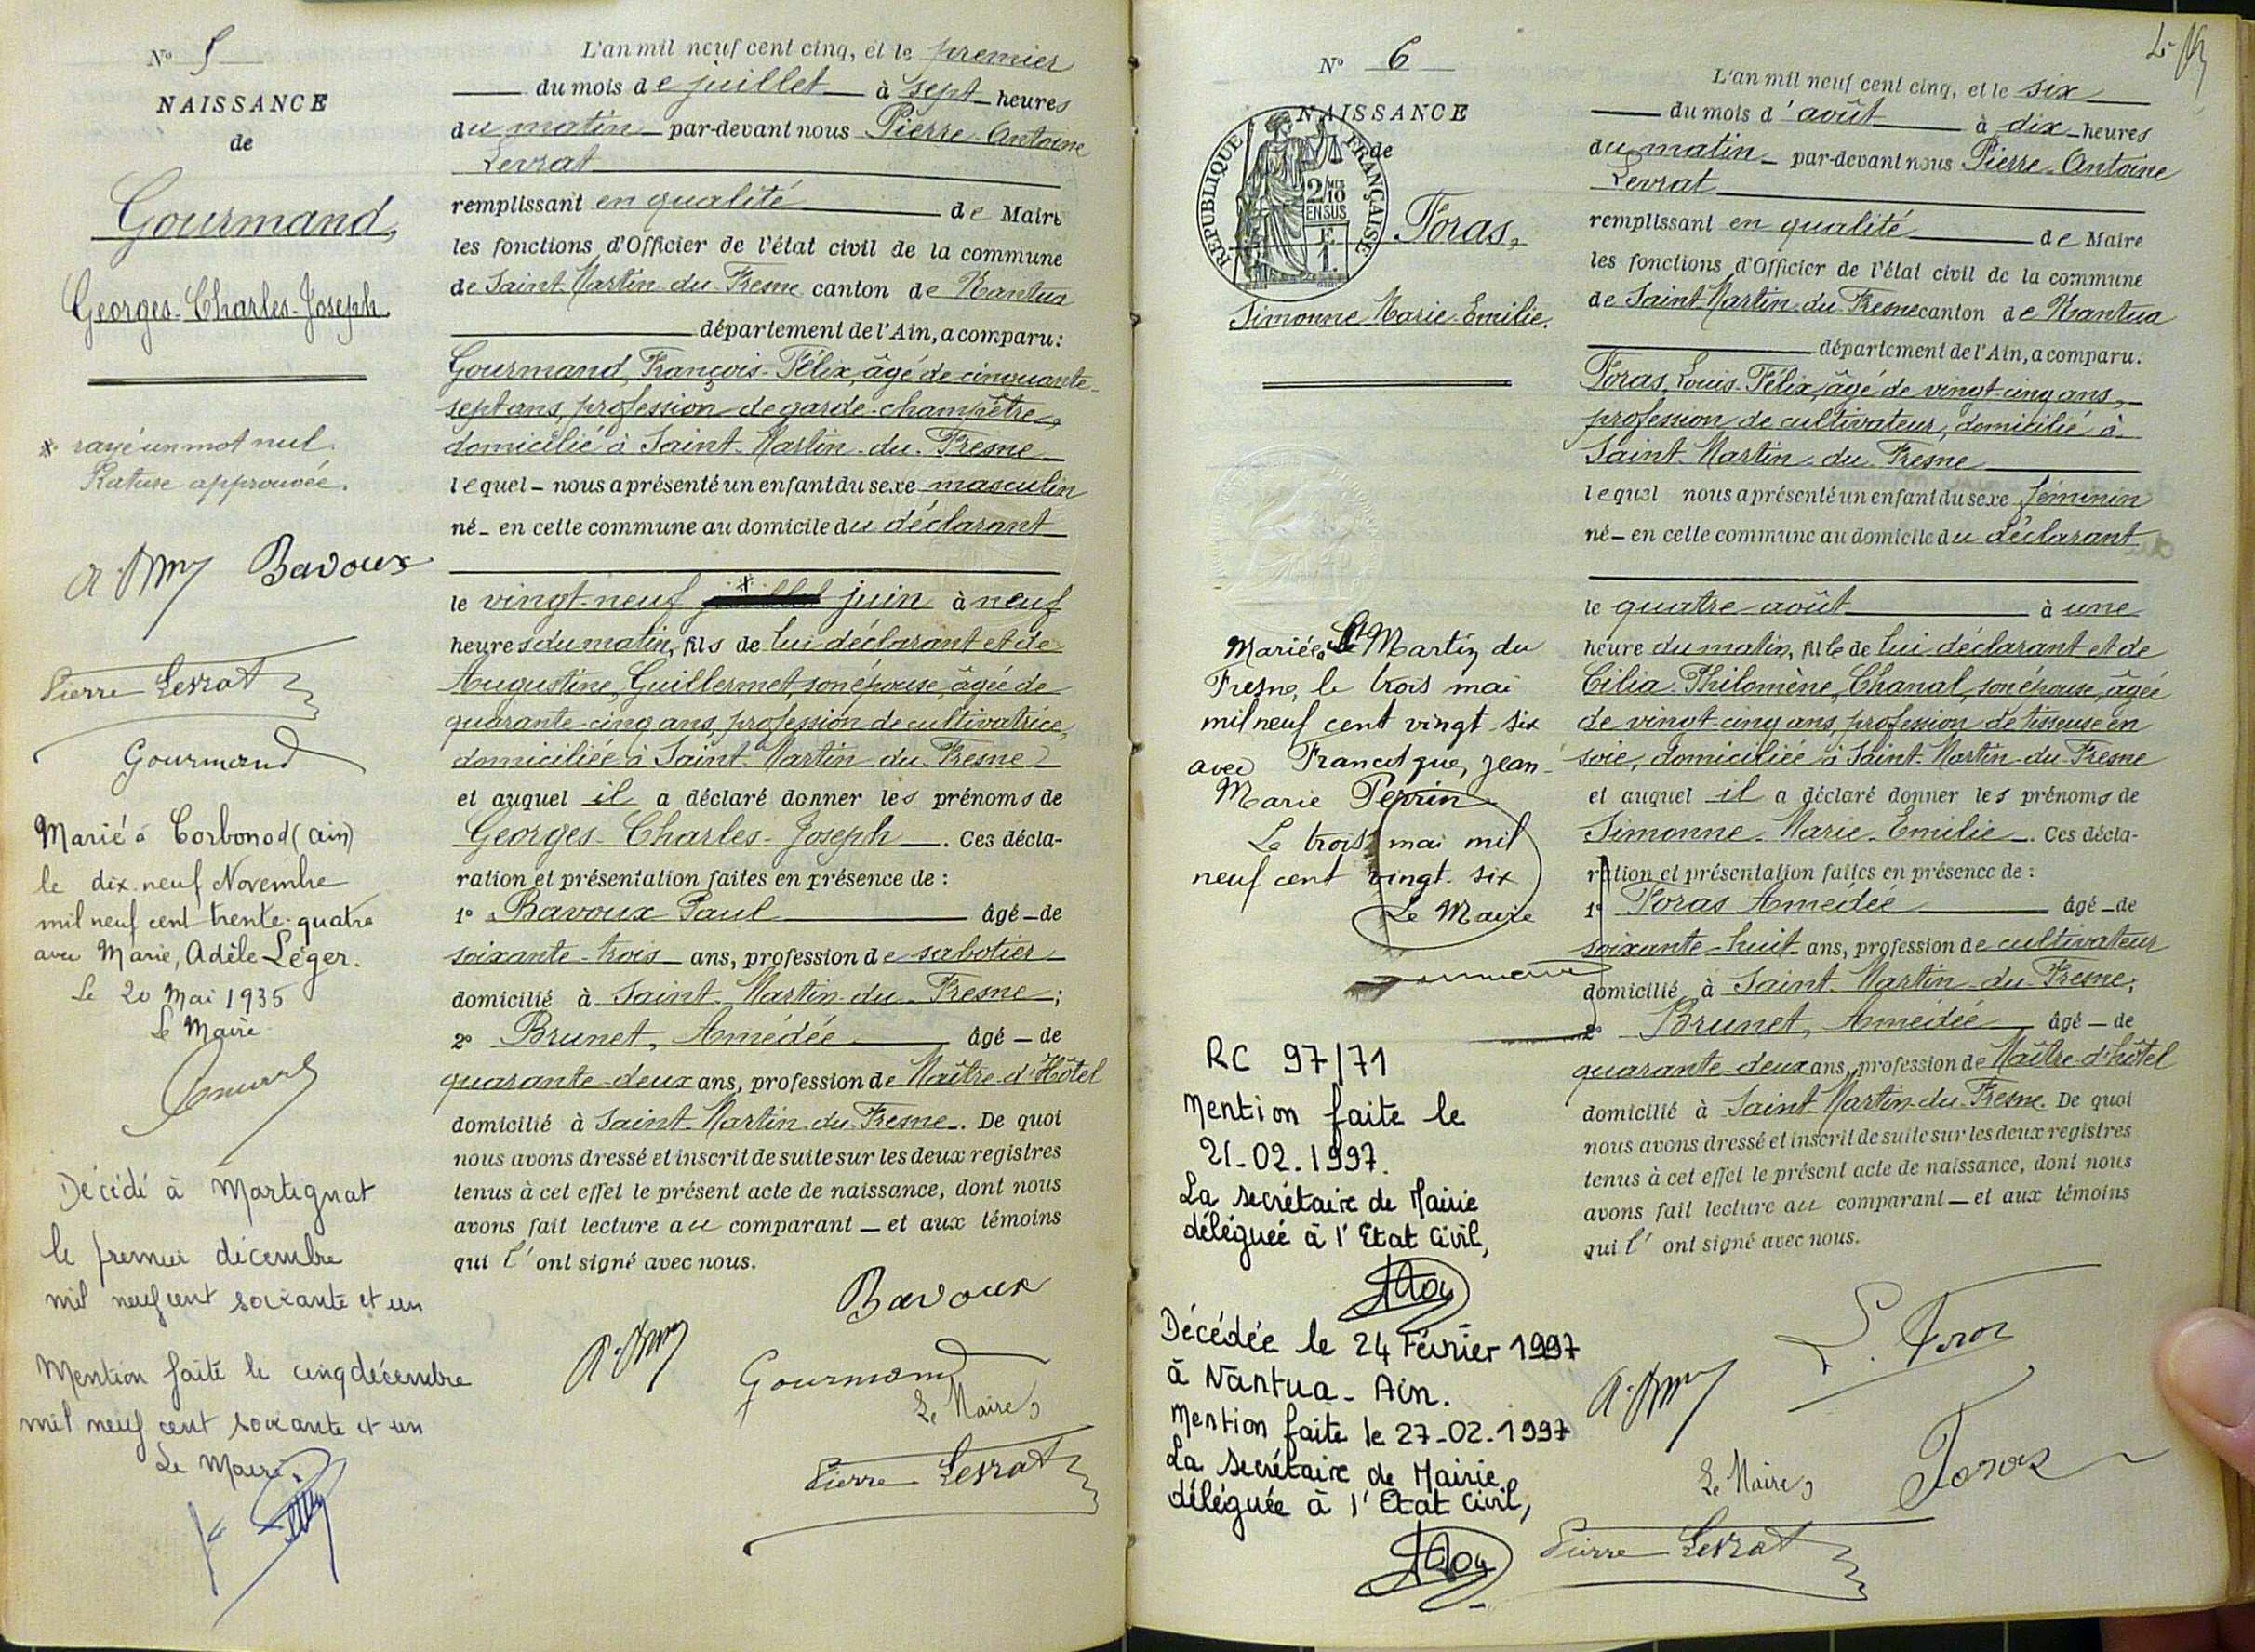 N° 5
NAISSANCE
de
Gourmand,
Georges-Charles-Joseph.
* rayé un mot nul.
Rature approuvée.
Bavoux
Pierre Levrat
Gourmand
Marié à Corbonod (Ain)
le dix-neuf Novembre
mil neuf cent trente-quatre
avec Marie, Adèle Léger.
Le 20 Mai 1935
Le Maire
Décédé à Martignat
le premier décembre
mil neuf cent soixante et un
Mention faite le cinq décembre
mil neuf cent soixante et un
Le Maire.
L'an mil neuf cent cinq, et le premier
du mois de juillet à sept heures
du matin par-devant nous Pierre-Antoine
Levrat
remplissant en qualité de Maire
les fonctions d'Officier de l'état civil de la commune
de Saint-Martin-du-Fresne canton de Nantua
département de l'Ain, a comparu:
Gourmand, François-Félix, âgé de cinquante-
sept ans, profession de garde-champêtre,
domicilié à Saint-Martin-du-Fresne
lequel nous a présenté un enfant du sexe masculin
né en cette commune au domicile du déclarant
le vingt-neuf juillet * juin à neuf
heures du matin, fils de lui déclarant et de
Augustine, Guillermet, son épouse, âgée de
quarante-cinq ans, profession de cultivatrice,
domiciliée à Saint-Martin-du-Fresne
et auquel il a déclaré donner les prénoms de
Georges-Charles-Joseph. Ces décla-
ration et présentation faites en présence de :
1° Bavoux Paul âgé de
soixante-trois ans, profession de sabotier
domicilié à Saint-Martin-du-Fresne;
2° Brunet, Amédée âgé de
quarante-deux ans, profession de Maître-d'Hôtel
domicilié à Saint-Martin-du-Fresne. De quoi
nous avons dressé et inscrit de suite sur les deux registres
tenus à cet effet le présent acte de naissance, dont nous
avons fait lecture au comparant et aux témoins
qui l'ont signé avec nous.
Bavoux
Gourmand
Le Maire,
Pierre Levrat
N° 6
NAISSANCE
de
REPUBLIQUE FRANÇAISE
2/10
EN SUS
Foras,
Simonne-Marie-Emilie.
Mariée à St Martin du
Fresne, le trois mai
mil neuf cent vingt six
avec Francisque, Jean-
Marie Perrin
Le trois mai mil
neuf cent vingt-six
Le Maire
RC 97/71
Mention faite le
21-02.1997.
La secrétaire de Mairie
déléguée à l'Etat Civil,
Décédée le 24 Février 1997
à Nantua - Ain.
Mention faite le 27-02-1997
La secrétaire de Mairie
déléguée à l'Etat Civil,
L'an mil neuf cent cinq, et le six
du mois d'août à dix heures
du matin par-devant nous Pierre-Antoine
Levrat
remplissant en qualité de Maire
les fonctions d'Officier de l'état civil de la commune
de Saint-Martin-du-Fresne canton de Nantua
département de l'Ain, a comparu:
Foras, Louis-Félix, âgé de vingt-cinq ans,
profession de cultivateur, domicilié à
Saint-Martin-du-Fresne
lequel nous a présenté un enfant du sexe féminin
né en cette commune au domicile du déclarant
le quatre août à une
heure du matin, fille de lui déclarant et de
Cilia-Philomène, Chanal, son épouse, âgée
de vingt-cinq ans, profession de tisseuse en
soie, domiciliée à Saint-Martin-du-Fresne
et auquel il a déclaré donner les prénoms de
Simonne-Marie-Emilie. Ces décla-
ration et présentation faites en présence de :
1° Foras Amédée âgé de
soixante-huit ans, profession de cultivateur
domicilié à Saint-Martin-du-Fresne;
2° Brunet, Amédée âgé de
quarante-deux ans, profession de Maître-d'hôtel
domicilié à Saint-Martin-du-Fresne. De quoi
nous avons dressé et inscrit de suite sur les deux registres
tenus à cet effet le présent acte de naissance, dont nous
avons fait lecture au comparant et aux témoins
qui l'ont signé avec nous.
Le Maire,
Foras
Pierre Levrat